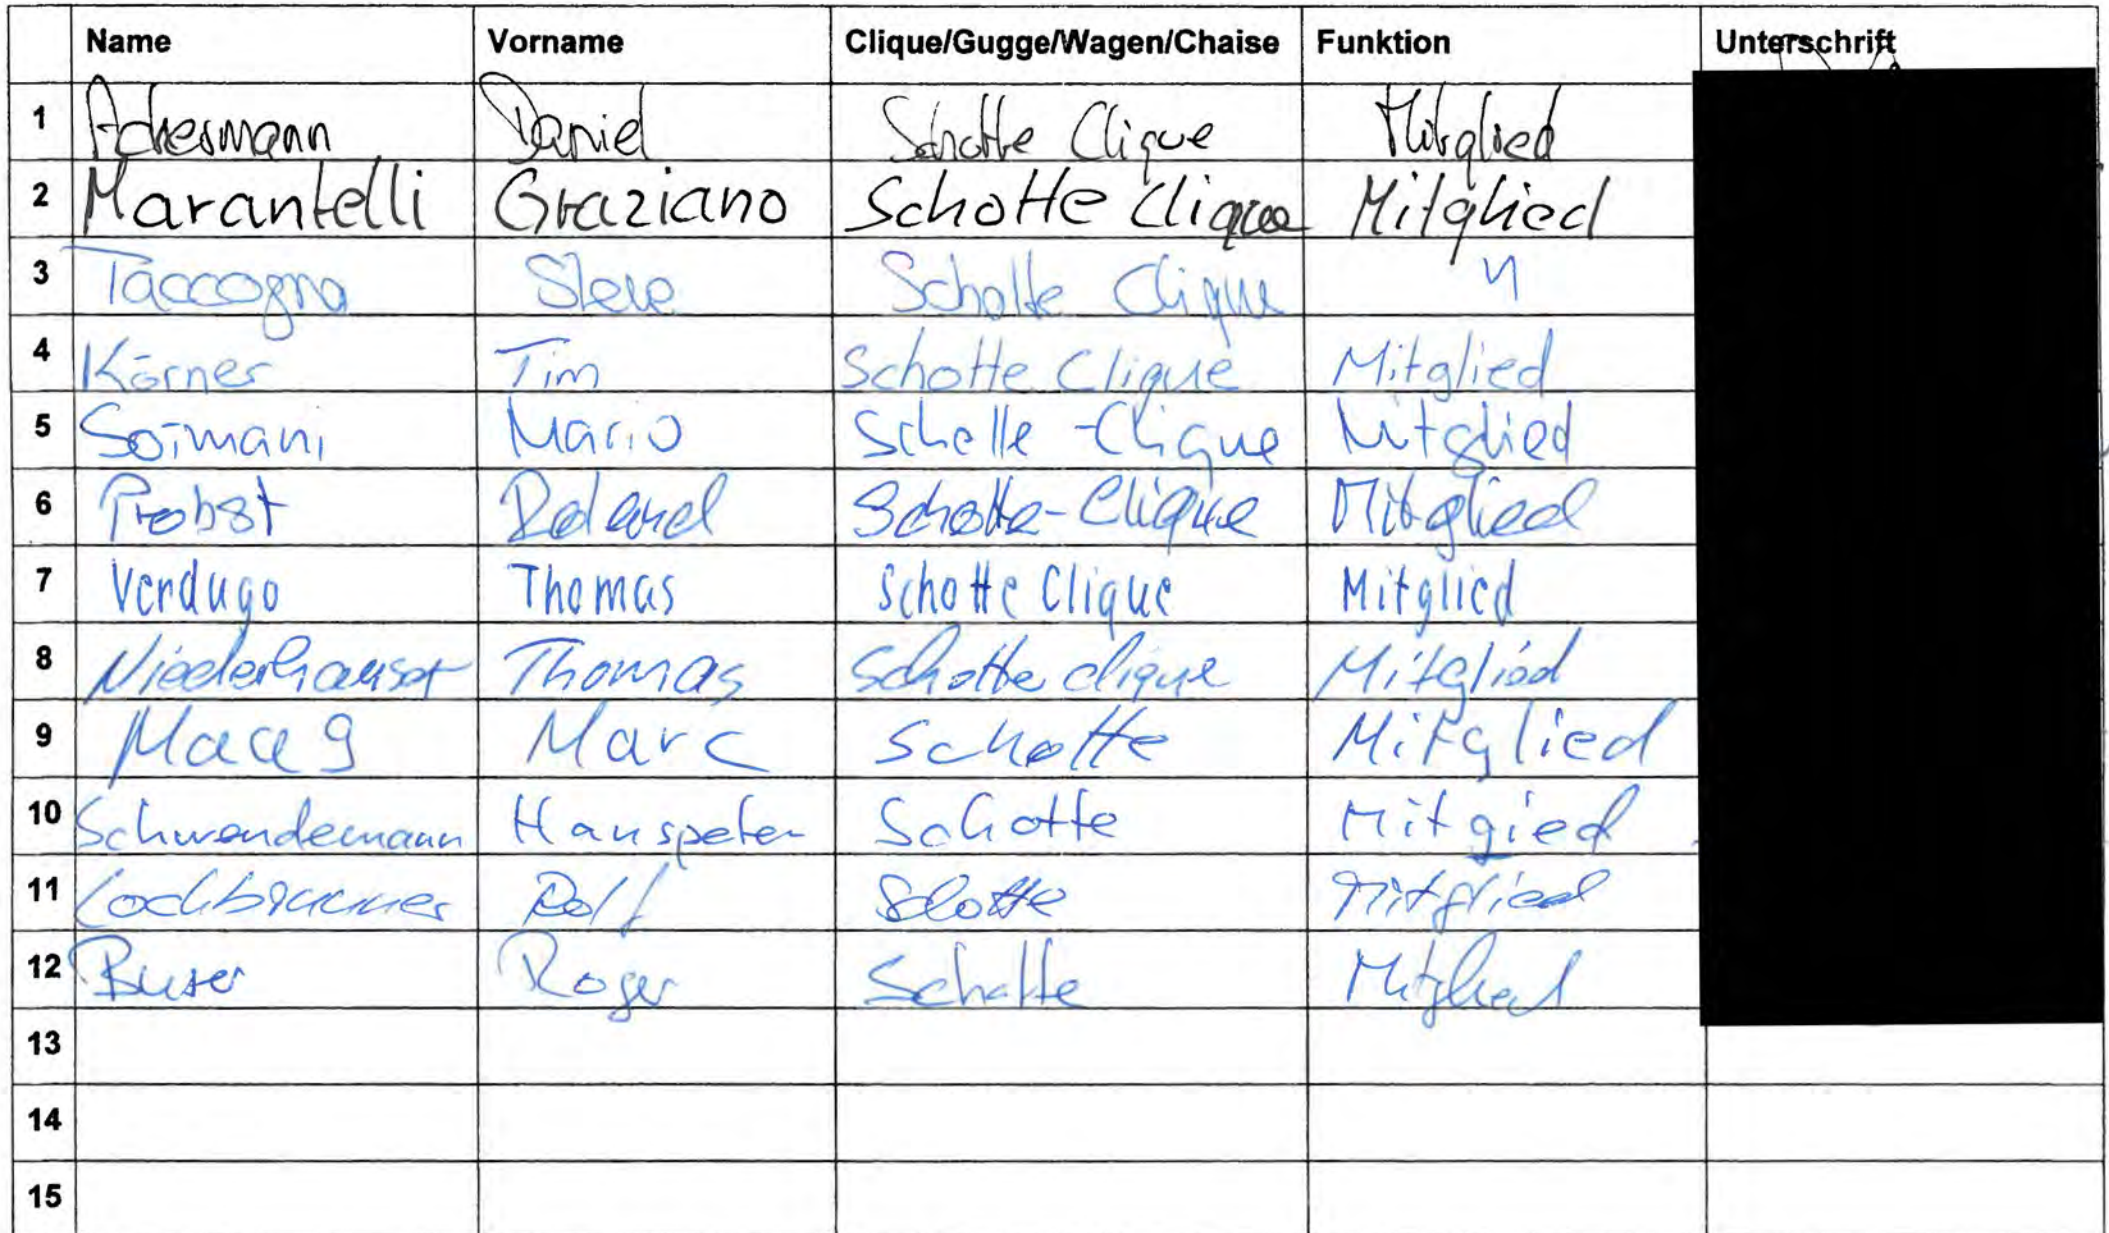 Name Vorname Clique/Gugge/Wagen/Chaise Funktion Unterschrift
1 Ackermann Daniel Schotte Clique Mitglied
2 Marantelli Graziano Schotte Clique Mitglied
3 Taccogna Steve Schotte Clique "
4 Körner Tim Schotte Clique Mitglied
5 Soimani Mario Schotte-Clique Mitglied
6 Probst Roland Schotte-Clique Mitglied
7 Verdugo Thomas Schotte Clique Mitglied
8 Niederhauser Thomas Schotte Clique Mitglied
9 Maag Marc Schotte Mitglied
10 Schwendemann Hanspeter Schotte Mitgied
11 Lochbrunner Rolf Schotte Mitglied
12 Buser Roger Schotte Mitglied
13
14
15